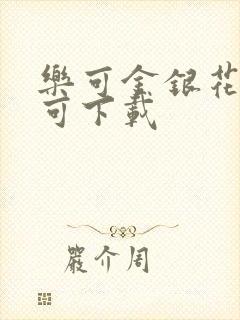 樂可金銀花
可下載
嚴介周